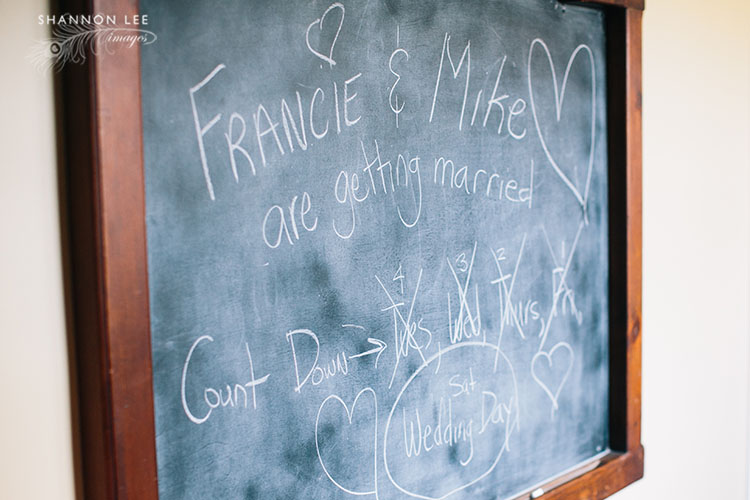 SHANNON LEE
images
FRANCIE & Mike
are getting married
4 3 2 1
Count Down → Tues, Wed, Thurs, Fri,
Sat
Wedding Day!